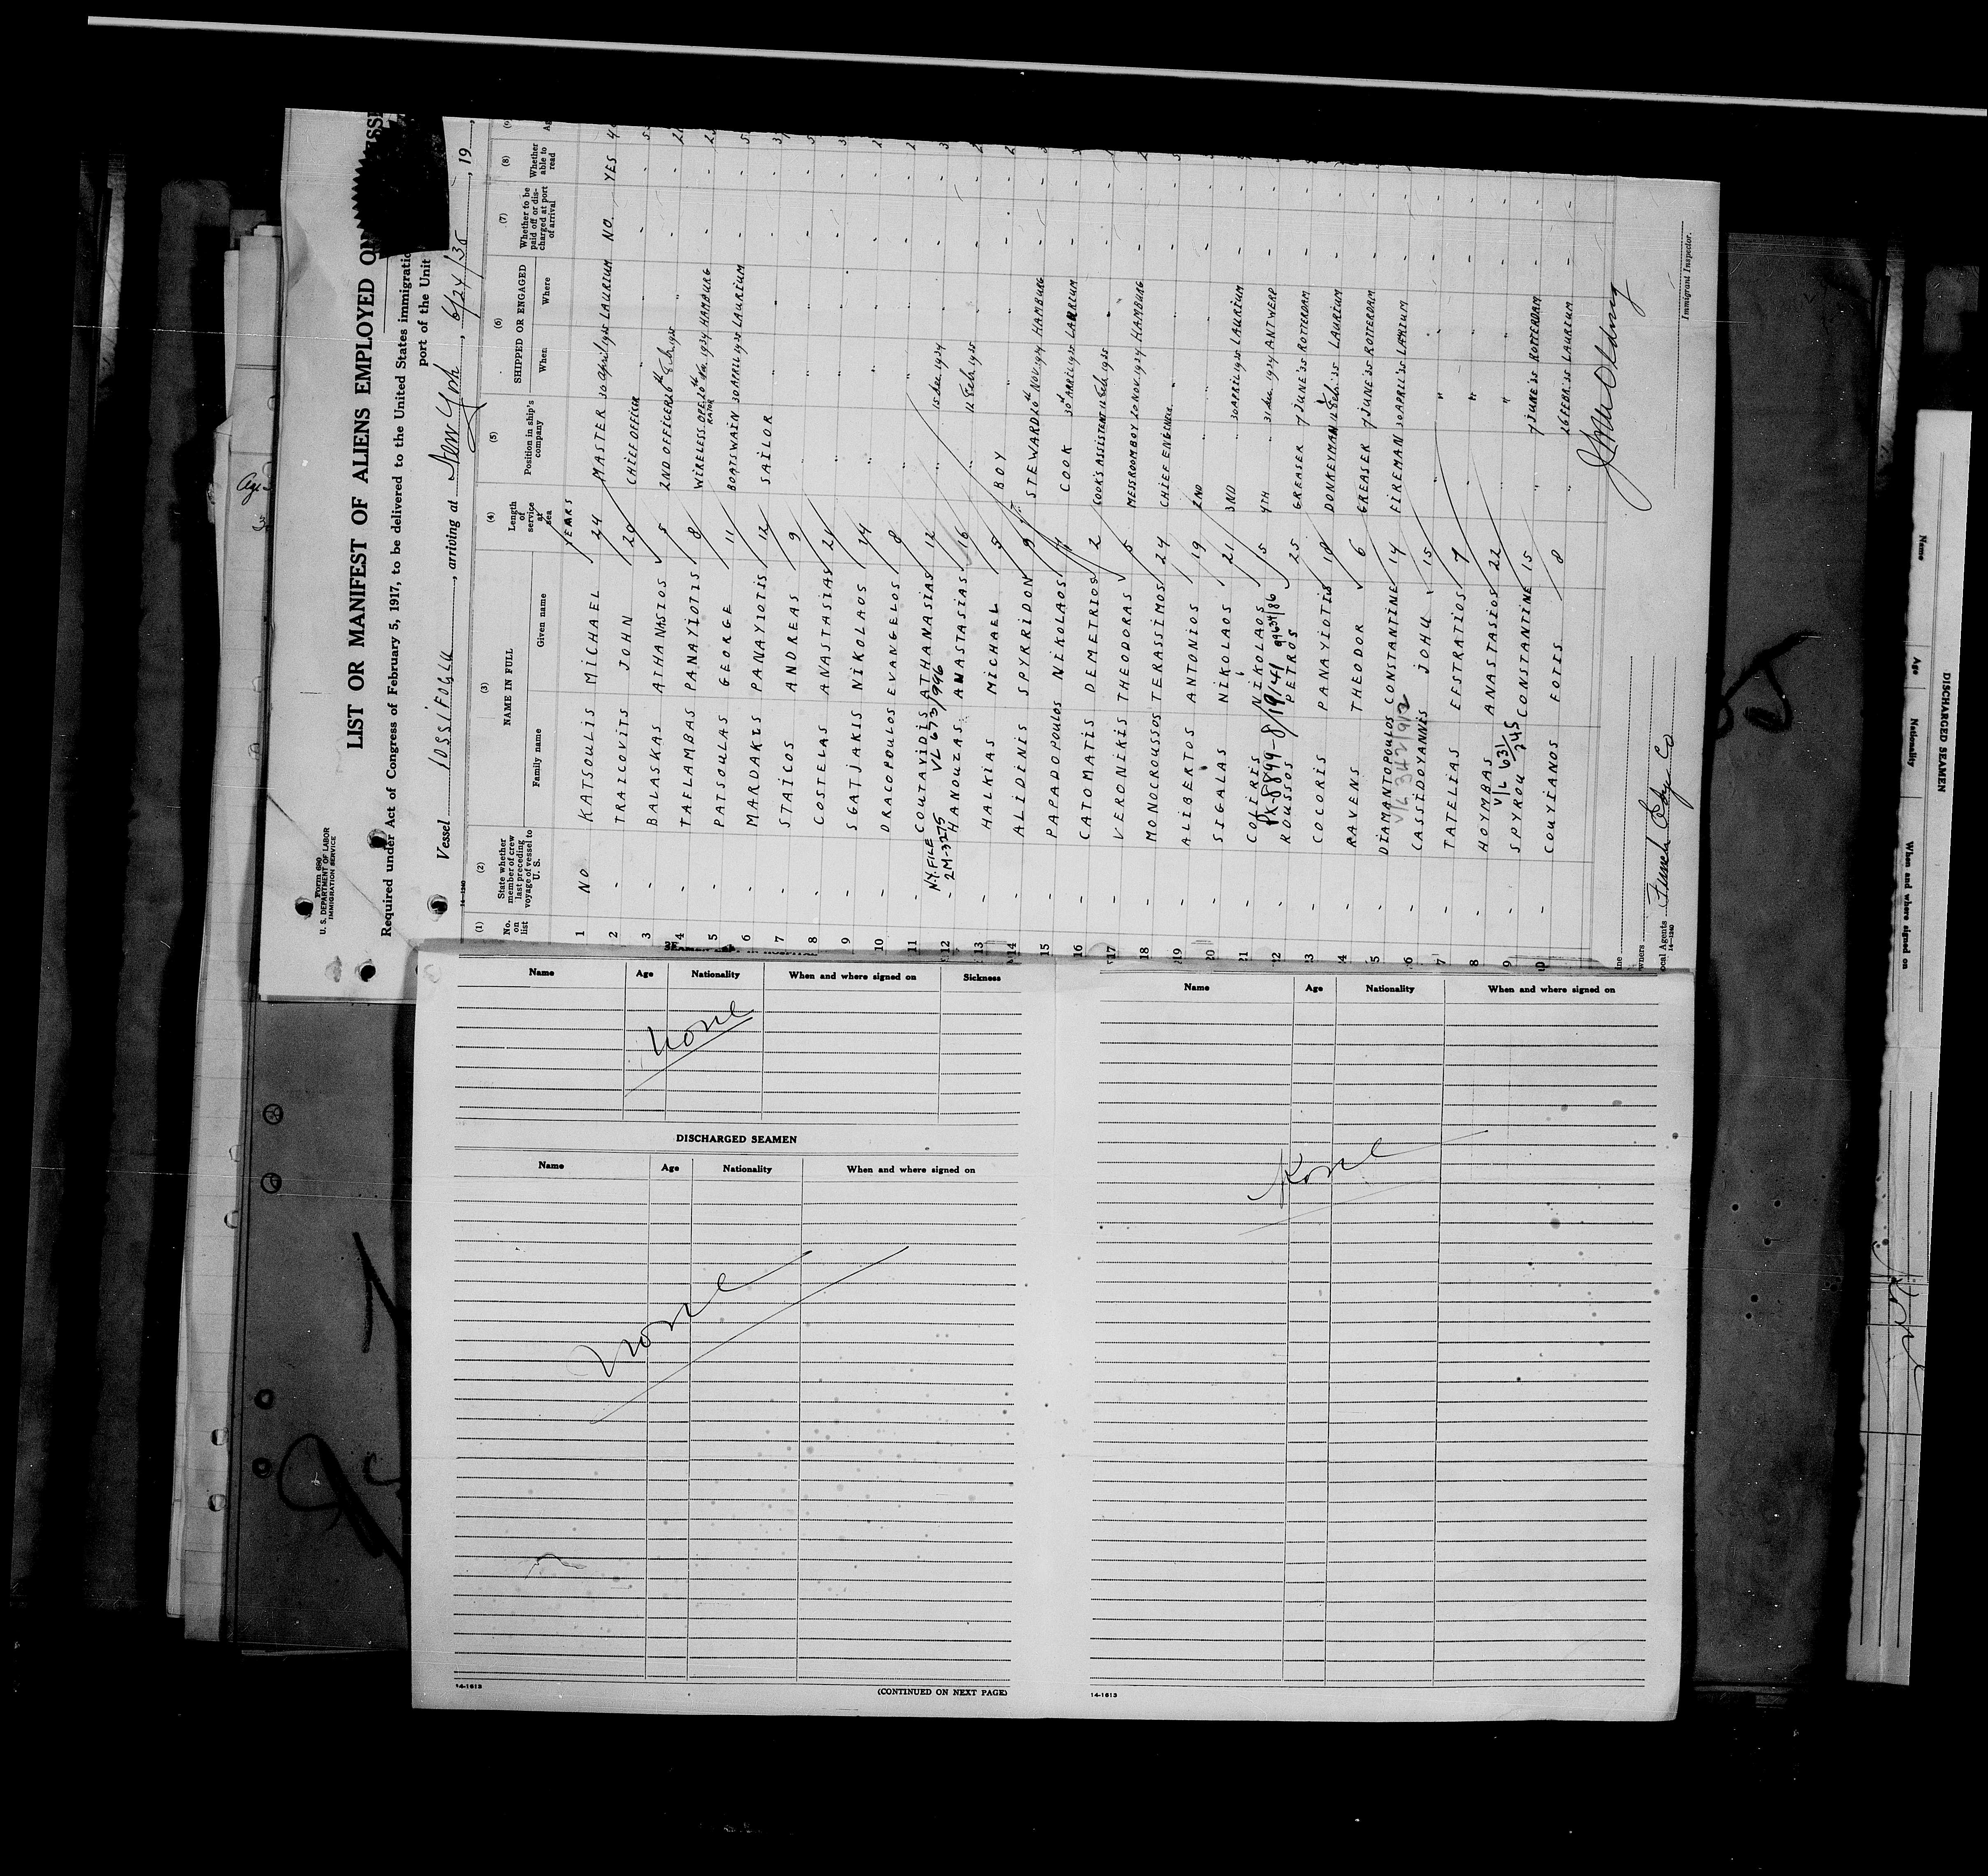 Form 680
U. S. DEPARTMENT OF LABOR
IMMIGRATION SERVICE
LIST OR MANIFEST OF ALIENS EMPLOYED ON
Required under Act of Congress of February 5, 1917, to be delivered to the United States immigratio
port of the Unit
Vessel IOSSIFOGLU, arriving at New York, 6/24/35, 19
14-1240
(1) (2) (3) (4) (5) (6) (7) (8)
No. on list
State whether member of crew last preceding voyage of vessel to U. S.
NAME IN FULL
Family name Given name
Length of service at sea
Position in ship's company
SHIPPED OR ENGAGED
When Where
Whether to be paid off or discharged at port of arrival
Whether able to read
YEARS
1 NO KATSOULIS MICHAEL 24 MASTER 30 April 1935 LAURIUM NO. YES
2 - TRAICOVITS JOHN 20 CHIEF OFFICER " " - -
3 - BALASKAS ATHANASIOS 5 2ND OFFICER 26th Feb. 1935 " - -
4 - TAFLAMBAS PANAYIOTIS 8 WIRELESS OPERATOR 20th Nov. 1934 HAMBURG - -
5 - PATSOULAS GEORGE 11 BOATSWAIN 30 APRIL 1935 LAURIUM - -
6 - MARDAKIS PANAYIOTIS 12 SAILOR " " - -
7 - STAICOS ANDREAS 9 " " " - -
8 - COSTELAS ANASTASIAS 21 " " " - -
9 - SGATJAKIS NIKOLAOS 14 " " " - -
10 - DRACOPOULOS EVANGELOS 8 " " " - -
11 - COUTAVIDIS ATHANASIAS 12 " 15 Dec. 1934 " - -
N.Y. FILE VL 673/996
2M-3275
12 - HANOUZAS ANASTASIAS 16 " 12 Feb. 1935 " - -
13 - HALKIAS MICHAEL 5 BOY " " - -
14 - ALIDINIS SPYRRIDON 9 STEWARD 20th NOV. 1934 HAMBURG - -
15 - PAPADOPOULOS NIKOLAOS 7 COOK 30th APRIL 1935 LAURIUM - -
16 - CATOMATIS DEMETRIOS 2 COOK'S ASSISTENT 12 Feb. 1935 " - -
17 - VERONIKIS THEODORAS 5 MESSROOM BOY 20 NOV. 1934 HAMBURG - -
18 - MONOCROUSSOS TERASSIMOS 24 CHIEF ENGINEER " " - -
19 - ALIBERTOS ANTONIOS 19 2ND " " " - -
20 - SIGALAS NIKOLAOS 21 3ND " 30 APRIL 1935 LAURIUM - -
21 - COFERIS NIKOLAOS 5 4TH " 31 Dec. 1934 ANTWERP - -
PK-8899-8/19/41 99634/86
12 - ROUSSOS PETROS 25 GREASER 7 JUNE '35 ROTTERDAM - -
3 - COCORIS PANAYIOTIS 10 DONKEYMAN 12 Feb. '35 LAURIUM - -
4 - RAVENS THEODOR 6 GREASER 7 JUNE '35 ROTTERDAM - -
5 - DIAMANTOPOULOS CONSTANTINE 14 FIREMAN 30 APRIL '35 LAURIUM - -
V/L 342/912
6 - CASSIDOYANNIS JOHN 15 " " " - -
7 - TATELIAS EFSTRATIOS 7 " " " - -
8 - HOYMBAS ANASTASIOS 22 " " " - -
V/L 631/245
9 - SPYROU CONSTANTINE 15 " 7 JUNE '35 ROTTERDAM - -
0 - COUYIANOS FOTIS 8 " 26 FEBR. '35 LAURIUM - -
ine
wners
ocal Agents Funch Edye Co
14-1240
Immigrant Inspector.
Name Age Nationality When and where signed on Sickness
None
DISCHARGED SEAMEN
Name Age Nationality When and where signed on
None
14-1613
(CONTINUED ON NEXT PAGE)
Name Age Nationality When and where signed on
None
14-1613
DISCHARGED SEAMEN
Name Age Nationality When and where signed on
Age